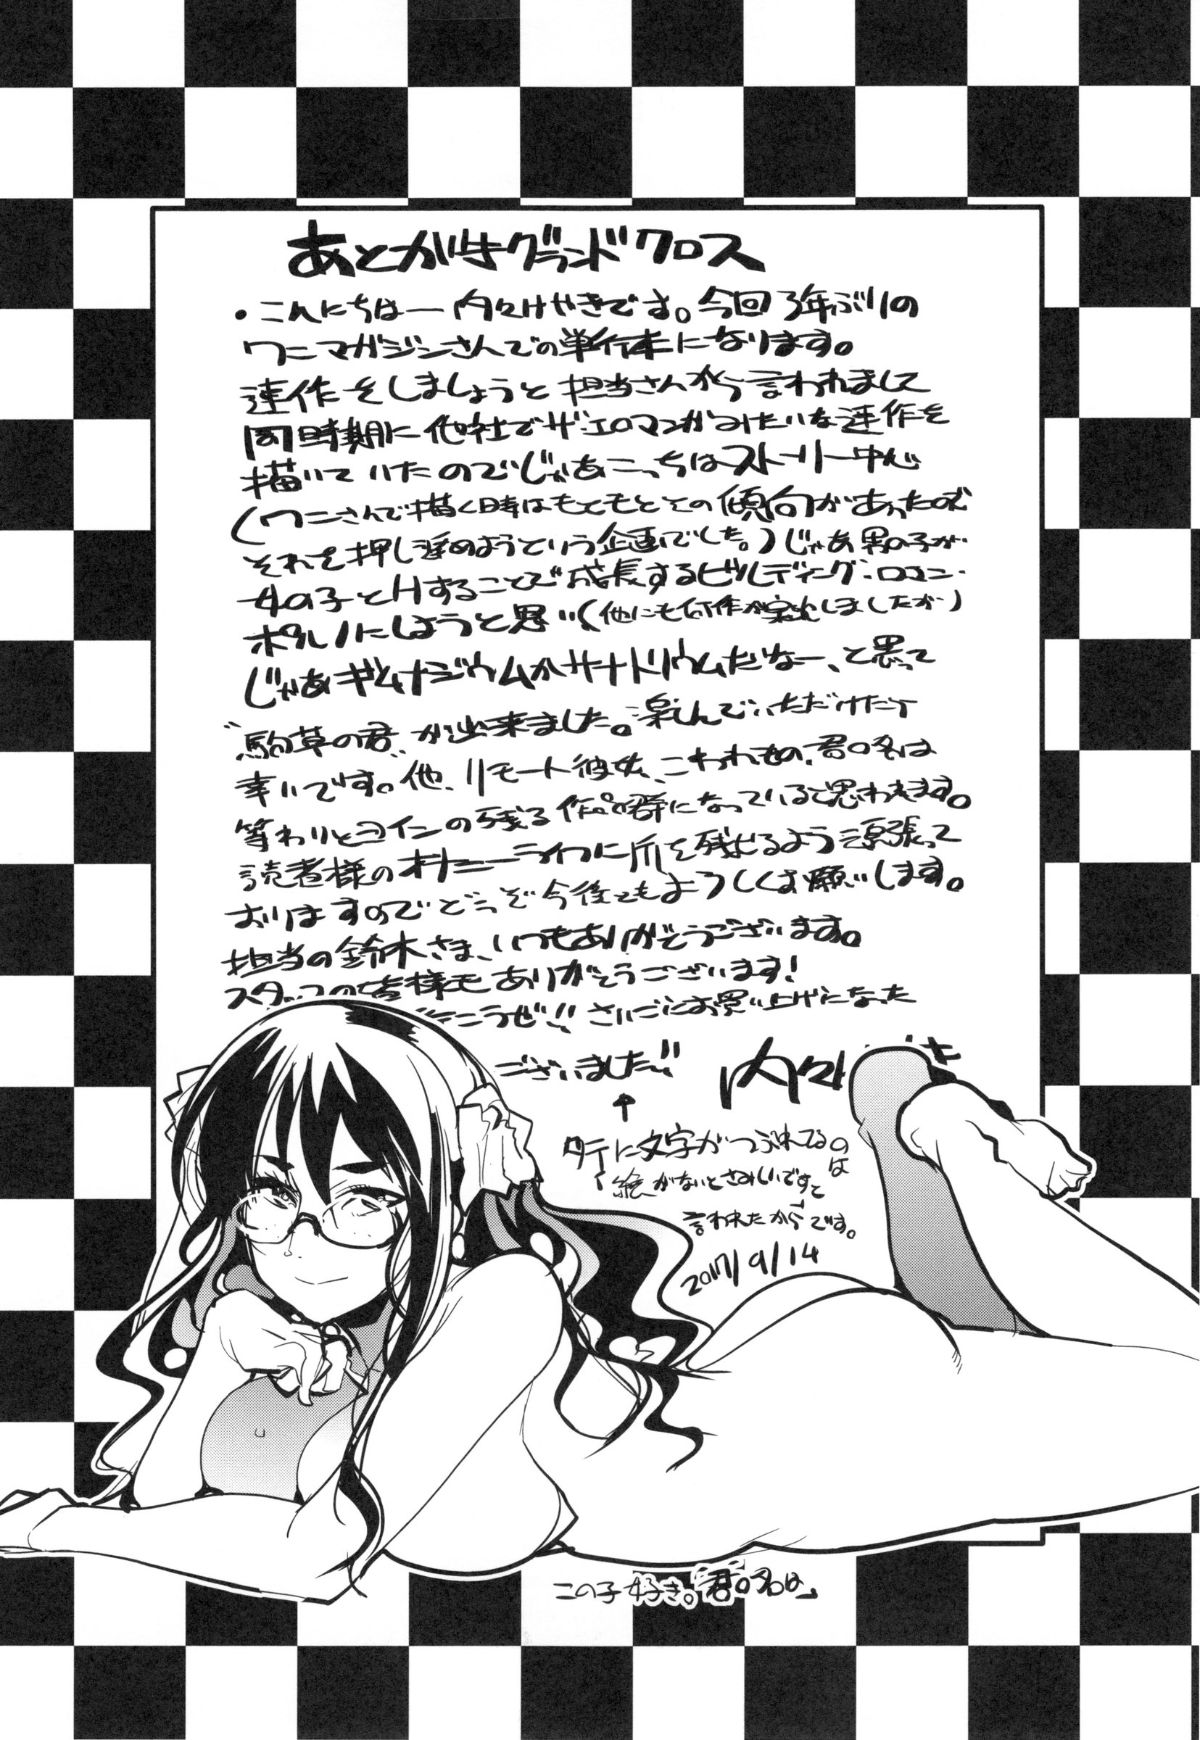 あとがきグランドクロス
・こんにちはー内々けやきです。今回3年ぶりの
ワニマガジンさんでの単行本になります。
連作をしましょうと担当さんから言われまして
同時期に他社でザ・エロマンガみたいな連作を
描いていたのでじゃあこっちはストーリー中心
(ワニさんで描く時はもともとその傾向があったので
それを押し進めようという企画でした。)じゃあ男の子が
女の子とHすることで成長するビルディング・ロマン・
ポルノにしようと思い(他にも何作か案出ししましたが)
じゃあギムナジウムかサナトリウムだなー、と思って
"駒草の君"が出来ました。楽しんでいただけたら
幸いです。他、リモート彼女、こわれもの、君の名は
等わりとヨインの残る作品群になっていると思われます。
読者様のオナニーライフに爪を残せるよう頑張って
おりますのでどうぞ今後ともよろしくお願いします。
担当の鈴木さま、いつもありがとうございます。
スタッフの皆様もありがとうございます!
行こうぜ!!さいごにお買い上げになった
ございました!!
内々
↑
タテに文字がつぶれてるのは
「絵がないとさみしいですと
言われたから」です。
2017/9/14
この子好き。「君の名は」